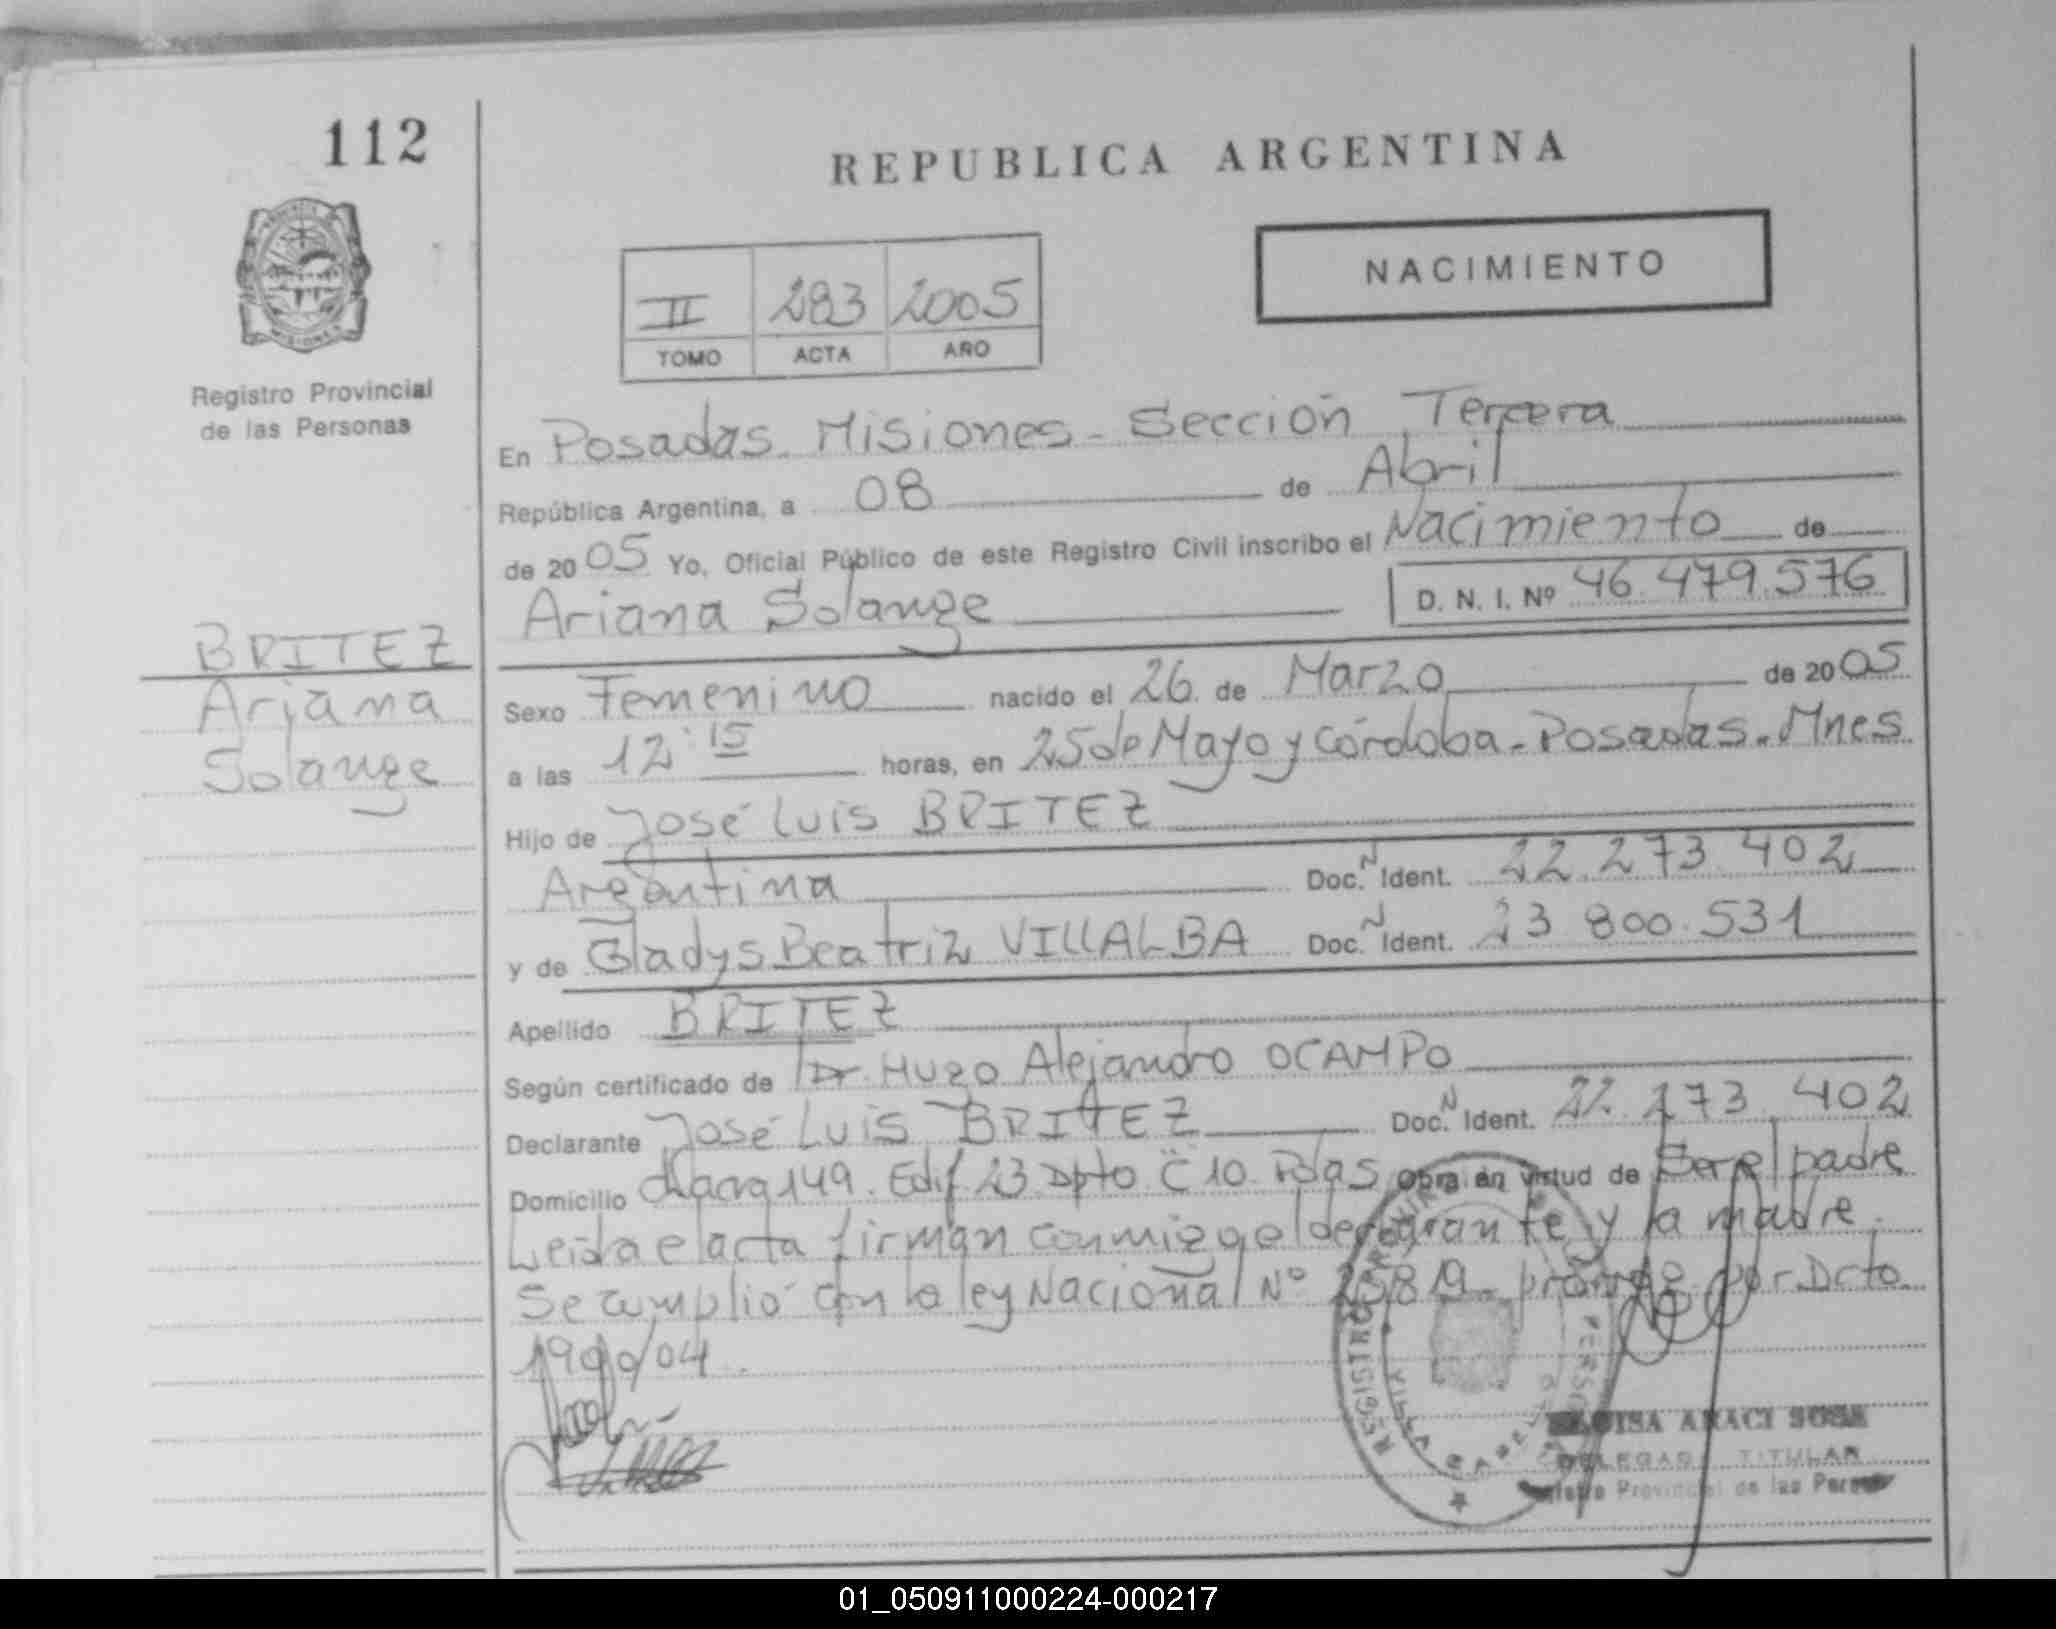 112
REPUBLICA ARGENTINA
NACIMIENTO
II 283 2005
TOMO ACTA AÑO
Registro Provincial
de las Personas
En Posadas. Misiones - Sección Tercera
República Argentina, a 08 de Abril
de 2005 Yo, Oficial Público de este Registro Civil inscribo el Nacimiento de
Ariana Solange D. N. I. Nº 46.479.576
BRITEZ
Ariana
Solange
Sexo Femenino nacido el 26 de Marzo de 2005
a las 12:15 horas, en 25 de Mayo y Córdoba - Posadas. Mnes.
Hijo de José Luis BRITEZ
Argentina Doc. N Ident. 22.273.402
y de Gladys Beatriz VILLALBA Doc. N Ident. 23 800.531
Apellido BRITEZ
Según certificado de Dr. Hugo Alejandro OCAMPO
Declarante José Luis BRITEZ Doc. N Ident. 22.273.402
Domicilio chacra 149. Edif. 23 Dpto. C 10. Pdas Obra en virtud de Ser el padre
Leida el acta firman conmigo el declarante y la madre.
Se cumplió con la ley Nacional Nº 25819 por Dcto
1990/04.
REGISTRO PROVINCIAL
VILLA CABELLO
ARACI SOSA
TITULAR
Provincial de las
01_050911000224-000217